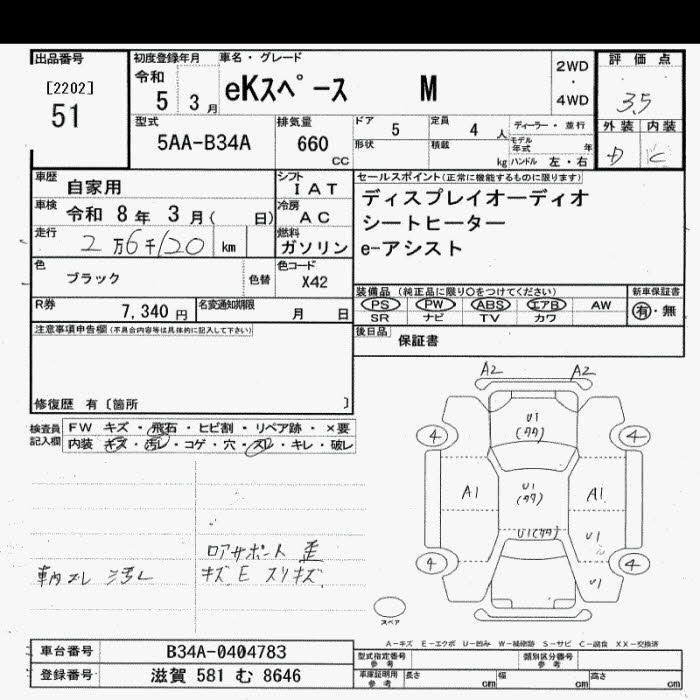 出品番号
[2202]
51
初度登録年月
令和
5 3 月
車名・グレード
eKスペース M
2WD
・
4WD
評価点
3.5
外装 内装
D C
型式
5AA-B34A
排気量
660
CC
ドア
5
定員
4 人
ディーラー・並行
形状
積載
kg
モデル年式
年
ハンドル 左・右
車歴
自家用
シフト
IAT
セールスポイント(正常に機能するものに限ります)
ディスプレイオーディオ
シートヒーター
e-アシスト
車検
令和 8 年 3 月( 日)
冷房
AC
走行
2万6千120 km
燃料
ガソリン
色
ブラック
色替
色コード
X42
装備品 (純正品に限り○をつけてください)
PS PW ABS エアB AW
SR ナビ TV カワ
新車保証書
有・無
R券
7,340 円
名変通知期限
月 日
後日品
保証書
注意事項申告欄(不具合内容等は具体的に記入して下さい)
修復歴 有〔箇所 〕
検査員記入欄
FW キズ・飛石・ヒビ割・リペア跡・×要
内装 キズ・汚レ・コゲ・穴・スレ・キレ・破レ
A2 A2
U1
(タタ)
4 4
A1
U1
(タタ)
A1
U1(タタ)
U1
4 4
U1
スペア
ロアサポート 歪
キズ E スリキズ
車内ズレ 汚レ
A-キズ E-エクボ U-凹み W-補修跡 S-サビ C-腐食 XX-交換済
車台番号
B34A-0404783
登録番号
滋賀 581 む 8646
型式指定番号
参考
類別区分番号
参考
車庫証明用
参考
長さ
cm
幅
cm
高さ
cm